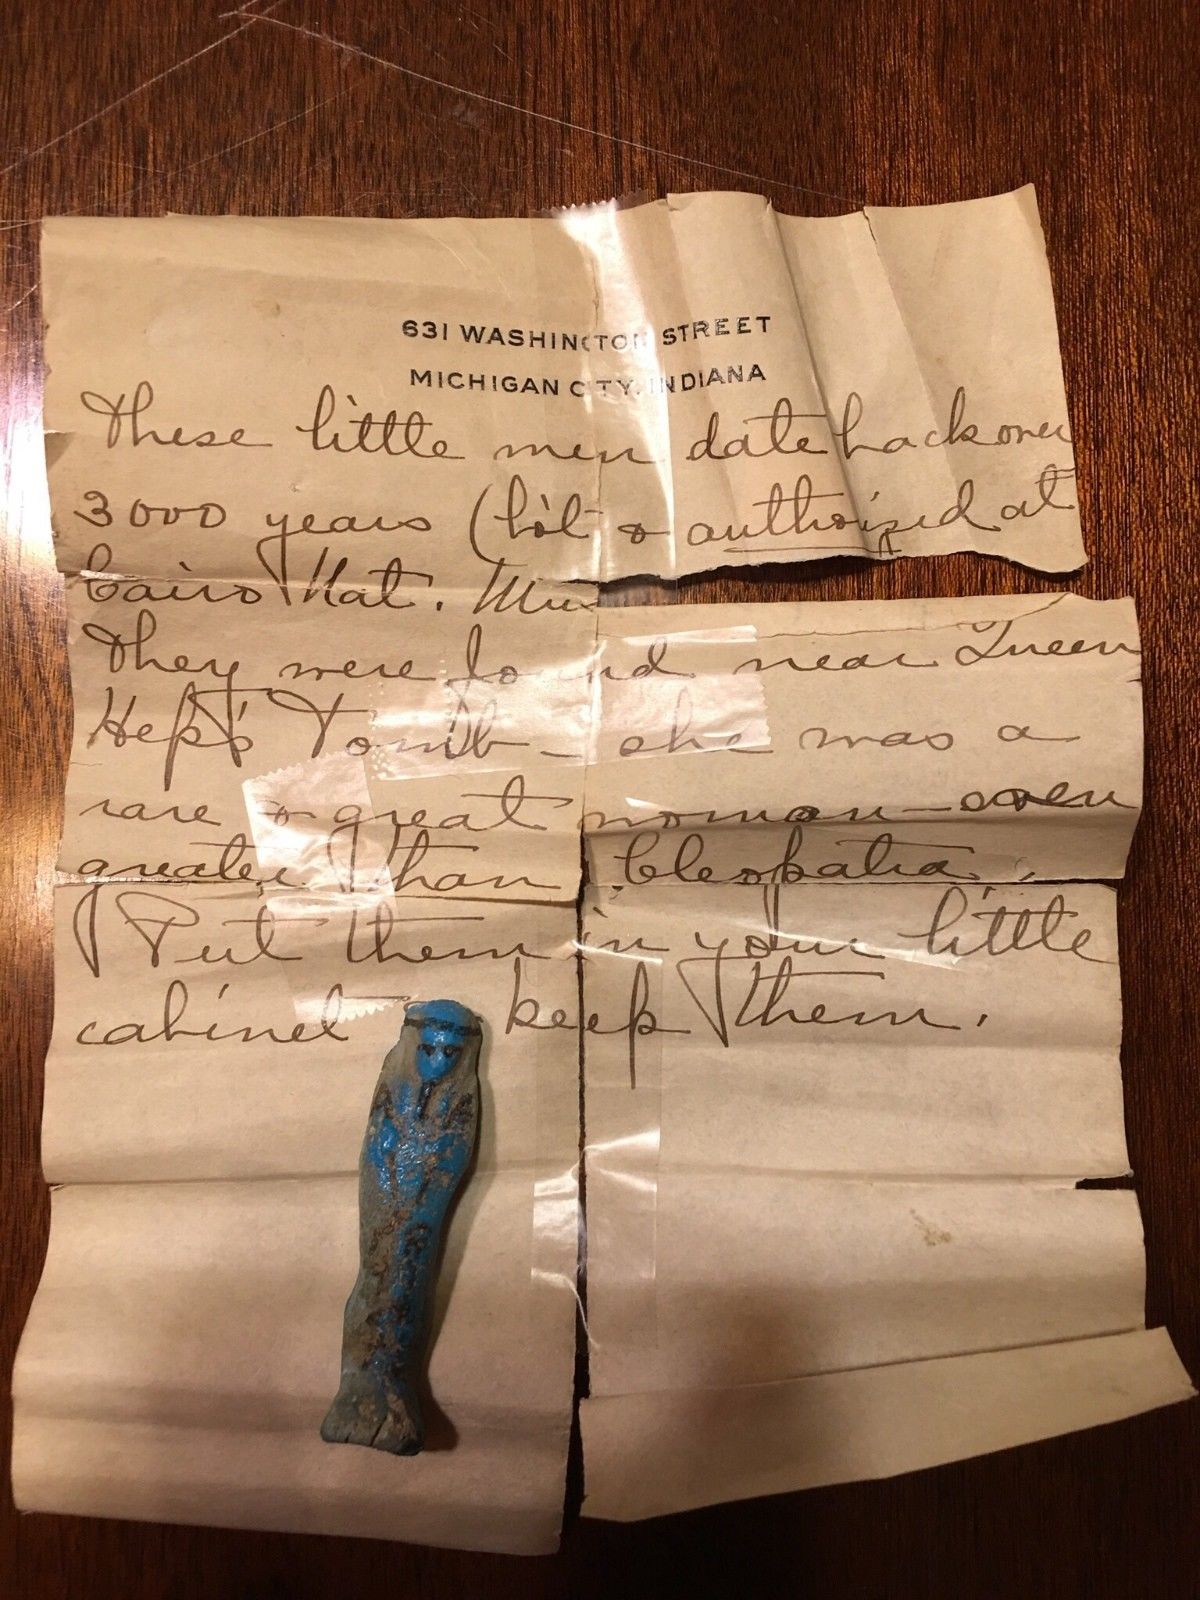 631 WASHINGTON STREET
MICHIGAN CITY, INDIANA
These little men date back over
3000 years (b't & authorized at
Cairo Nat. Mus
They were found near Queen
Hep's Tomb - she was a
rare & great woman - even
greater than Cleopatra.
Put them in your little
cabinet keep them.